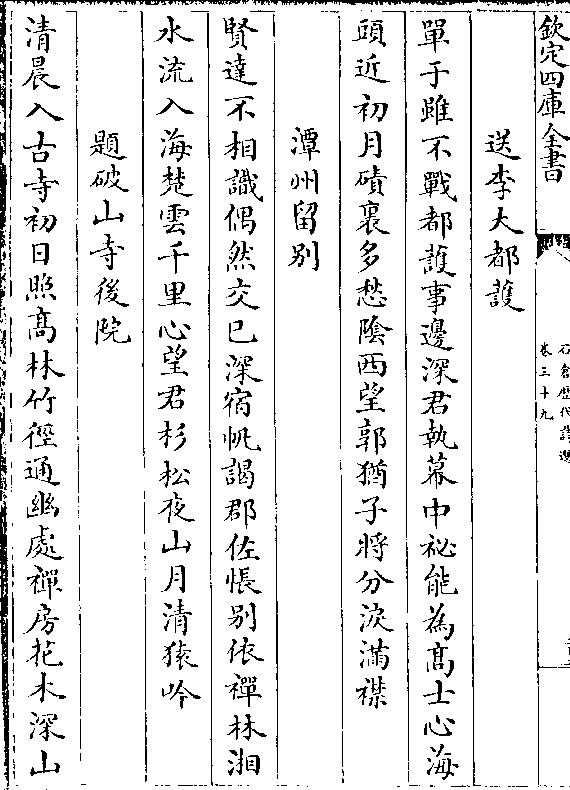 欽定四庫全書
石倉歴代詩選
卷三十九
送李大都䕶
單于雖不戰都䕶事邊深君執幕中祕能為髙士心海
頭近初月磧裏多愁陰西望郭猶子將分淚滿襟
潭州留别
賢達不相識偶然交已深宿帆謁郡佐悵别依禪林湘
水流入海楚雲千里心望君杉松夜山月清猿吟
題破山寺後院
清晨入古寺初日照髙林竹徑通幽處禪房花木深山